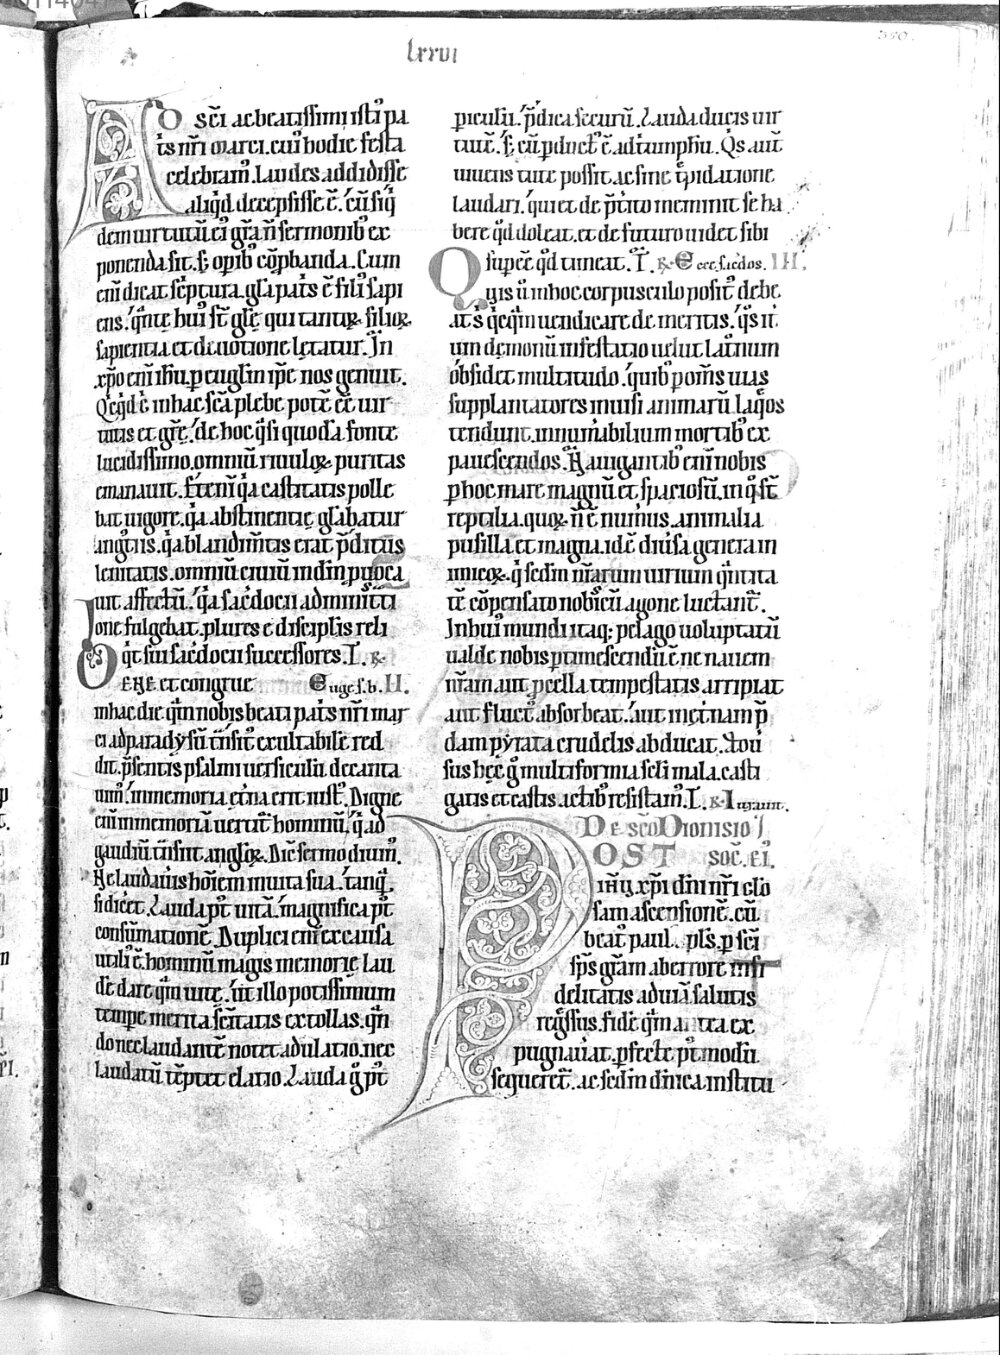 lxxvi
350.
AD sc̄i ac beatissimi isti᷒ pa
tis nr̄i marci. cui᷒ hodie festa
celebram᷒. laudes addidisse
aliq̇d decepsisse ē. c̄ū siq̇
dem uirtutū ei᷒ gr̄a n̄ sermonib᷒ ex
ponenda sit. s; opib᷒ cōp̄banda. Cum
eni̅ dicat sc̄ptura. gl̄a pat̄s ē fili᷒ sapi
ens. q̇nte hui᷒ st̄ glē. qui tantoꝝ filioꝝ
sapientia et deuotione letatur. Jn
xp̄o eni̅ ih̄u. ꝑ euglīn ip̄e nos genuit.
Qcq̇d ē in hac sc̄a plebe potē ēē uir
tutis et gr̄e. de hoc q̇si quodā fonte
lucidissimo. omniū riuuloꝝ puritas
emanauit. Eteni̅ q̇a castitatis polle
bat uigore. q̇a abstinentie gl̄abatur
angustiis. q̇a blandim̄tis erat p̄ditus
lenitatis. omniū ciuiū in dm̄ puoca
uit affectū. q̇a sac̄docii admini̅st̄ti
one fulgebat. plures e discipl̄is reli
q̇t sui sac̄docii successores. T. ℟
ENE et congrue Euge s. b. II.
in hac die. q̇m nobis beati pat̄s nr̄i mar
ci ad paradysū t̄nsit᷒ exultabilē red
dit. p̄sentis psalmi uersiculū decanta
uim᷒. in memoria et̄na erit iust᷒. Digne
eni̅ in memoriā uertit᷒ hominū. q̇ ad
gaudiū t̄nsiit angloꝝ. Dic̄ sermo diuin᷒.
Ne laudaueris hoīem in uita sua. tanq̇
si diceret. Lauda p᷒t uitā. magnifica p᷒t
consūmationē. Duplici eni̅ ex causa
utili᷒ ē. hominū magis memorie lau
dē dare q̇m uite. ut illo potissimum
tempe merita sc̄itatis extollas. q̇n
do nec laudantē notet adulatio. nec
laudatū tēptet elatio. Lauda g᷒ p᷒t
piculū. p̄dica securū. Lauda ducis uir
tutē. s; cū pduct᷒ ē ad t̓umphū. Qs aut̄
uiuens tute possit. ac sine t̓pidatione
laudari. qui et de p̄t̓ito meminit se ha
bere q̇d doleat. et de futuro uidet sibi
supēē q̇d timeat. T. ℟ Ecce sac̄dos. III.
Qvis ū in hoc corpusculo posit᷒ debe
at s̓ q̇cq̇m uendicare de meritis. q̇s it̓
um demonū infestatio uelut latronum
obsidet multitudo. quib᷒ pom̄s uias
supplantatores inuisi animarū laq̇os
tendunt. innumabilium mortib᷒ ex
pauescendos. Nauigantib᷒ eni̅ nobis
p hoc mare magnū et spaciosū. in q᷒ st̄
reptilia. quoꝝ n̄ ē num̓us. animalia
pusilla et magna. id ē diu̓sa genera in
imicoꝝ. q̇ sedm̄ nr̄arum uirium q̇ntita
tē cōpensato nobiscū agone luctant᷒.
Jn hui᷒ mundi itaq; pelago uoluptatū
ualde nobis ptimescendū ē. ne nauem
nr̄am aut pcella tempestatis arripiat
aut fluct᷒ absorbeat. aut in et̓nam p̄
dam pyrata crudelis abducat. Adu̓
sus hec g᷒ multiformia seculi mala. casti
gatis et castis actib᷒ resistam᷒. T. ℟ Iurauit.
De scō Dionisio ⁊
POST soc̄. ei᷒.
ih̄u xp̄i dn̄i nr̄i glo
sam ascensionē. cū
beat᷒ paul᷒. pl̄s. p sc̄i
sp̄s gr̄am ab errore infi
delitatis ad uiā salutis
regressus. fidē q̇m antea ex
pugnauerat. pfecte p᷒t modū
sequeret᷒. ac sedm̄ dn̄ica institu